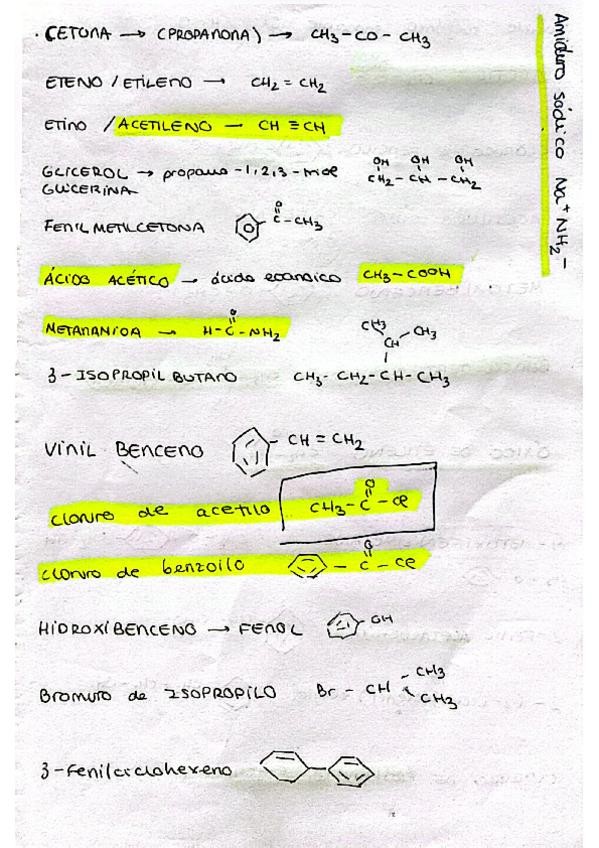 · CETONA → (PROPANONA) → CH₃-CO-CH₃
ETENO / ETILENO → CH₂=CH₂
ETINO / ACETILENO → CH≡CH
GLICEROL → propano-1,2,3-triol
OH OH OH
CH₂-CH-CH₂
GLICERINA
FENIL METIL CETONA
O
C-CH₃
ÁCIDO ACÉTICO → ácido etanoico CH₃-COOH
METANAMIDA → H-C-NH₂
O
3-ISOPROPIL BUTANO
CH₃ CH₃
CH
CH₃-CH₂-CH-CH₃
VINIL BENCENO -CH=CH₂
cloruro de acetilo
O
CH₃-C-Cl
cloruro de benzoilo
O
-C-Cl
HIDROXIBENCENO → FENOL -OH
BROMURO de ISOPROPILO Br-CH
CH₃
CH₃
3-fenilciclohexeno
Amiduro sódico Na⁺NH₂⁻